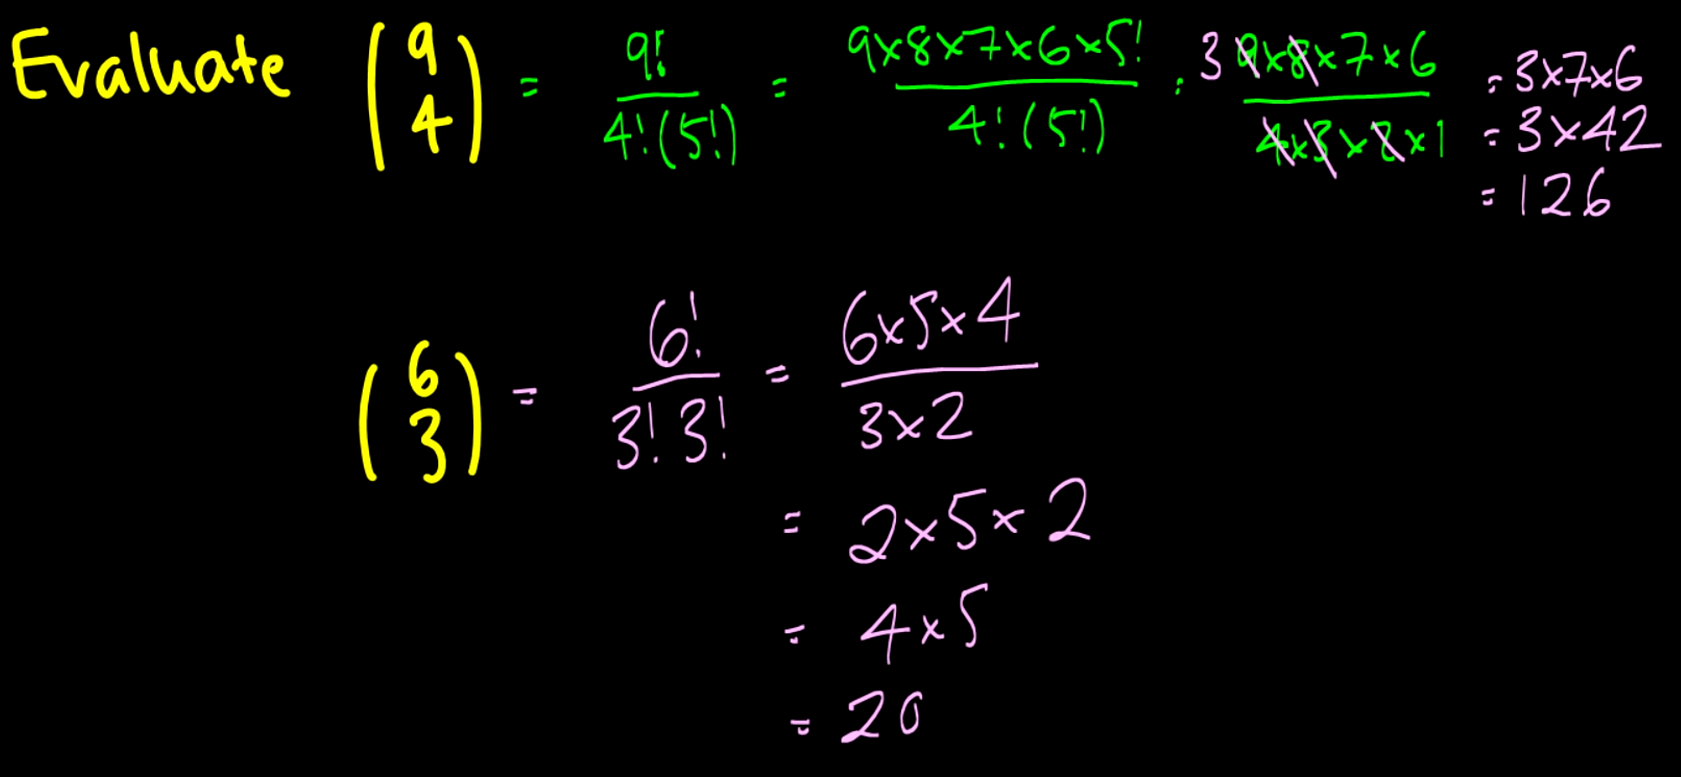 Evaluate (9 4) = 9!/4!(5!) = 9×8×7×6×5!/4!(5!) = 3 9×8×7×6/4×3×2×1 = 3×7×6
= 3×42
= 126
(6 3) = 6!/3!3! = 6×5×4/3×2
= 2×5×2
= 4×5
= 20